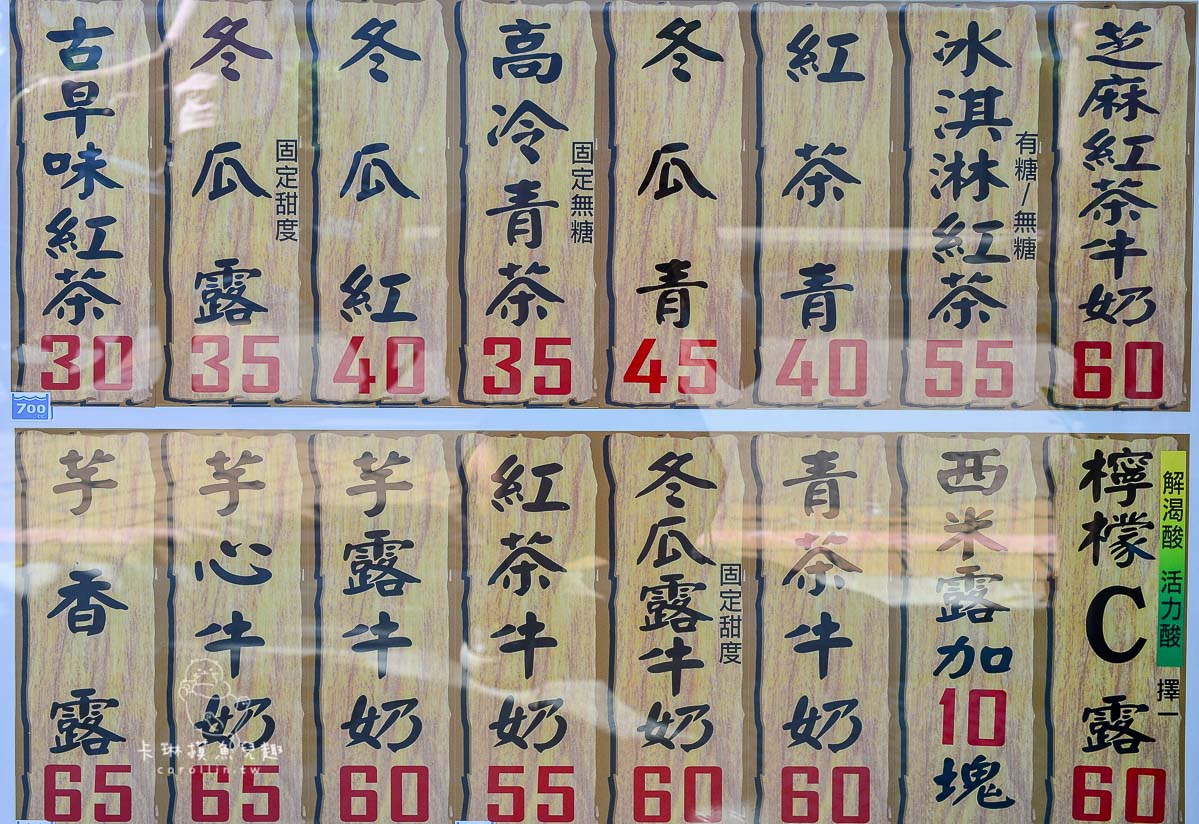 古早味紅茶
30
冬瓜露
固定甜度
35
冬瓜紅
40
高冷青茶
固定無糖
35
冬瓜青
45
紅茶青
40
冰淇淋紅茶
有糖/無糖
55
芝麻紅茶牛奶
60
700
cc
芋香露
65
芋心牛奶
65
芋露牛奶
60
紅茶牛奶
55
冬瓜露牛奶
固定甜度
60
青茶牛奶
60
西米露加10塊
檸檬C露
解渴酸 活力酸
擇一
60
卡琳摸魚兒趣
carollin.tw